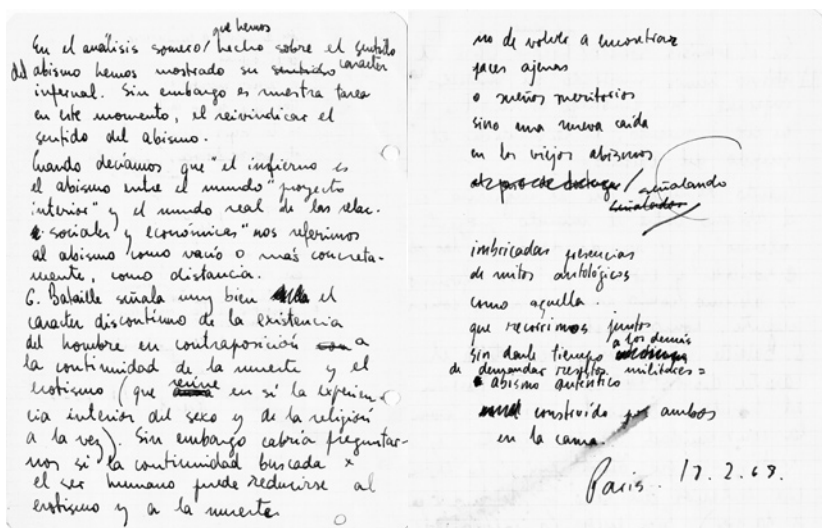 que hemos
En el análisis somero/ hecho sobre el sentido
del abismo hemos mostrado su sentido caracter
infernal. Sin embargo es nuestra tarea
en este momento, el reivindicar el
sentido del abismo.
Cuando decíamos que "el infierno es
el abismo entre el mundo "proyecto
interior" y el mundo real de las relac.
sociales y económicas" nos referimos
al abismo como vacío o más concreta-
mente, como distancia.
G. Bataille señala muy bien el
caracter discontinuo de la existencia
del hombre en contraposición con a
la continuidad de la muerte y el
erotismo (que reúne en sí la experien-
cia interior del sexo y de la religión
a la vez). Sin embargo cabría preguntar-
nos si la continuidad buscada x
el ser humano puede reducirse al
erotismo y a la muerte
no de volver a encontrar
yaces ajenas
o sueños meritorios
sino una nueva caída
en los viejos abismos
/ señalando
señalados
imbricadas presencias
de mitos antológicos
como aquella
que recorrimos juntos
sin darle tiempo a los demás
de demandar resoltos militares =
abismo auténtico
construído por ambos
en la cama.
Paris. 17.2.69.